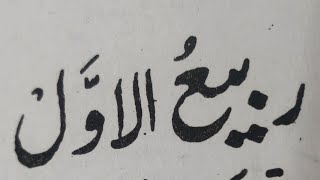 ربیعُ الاوَّل